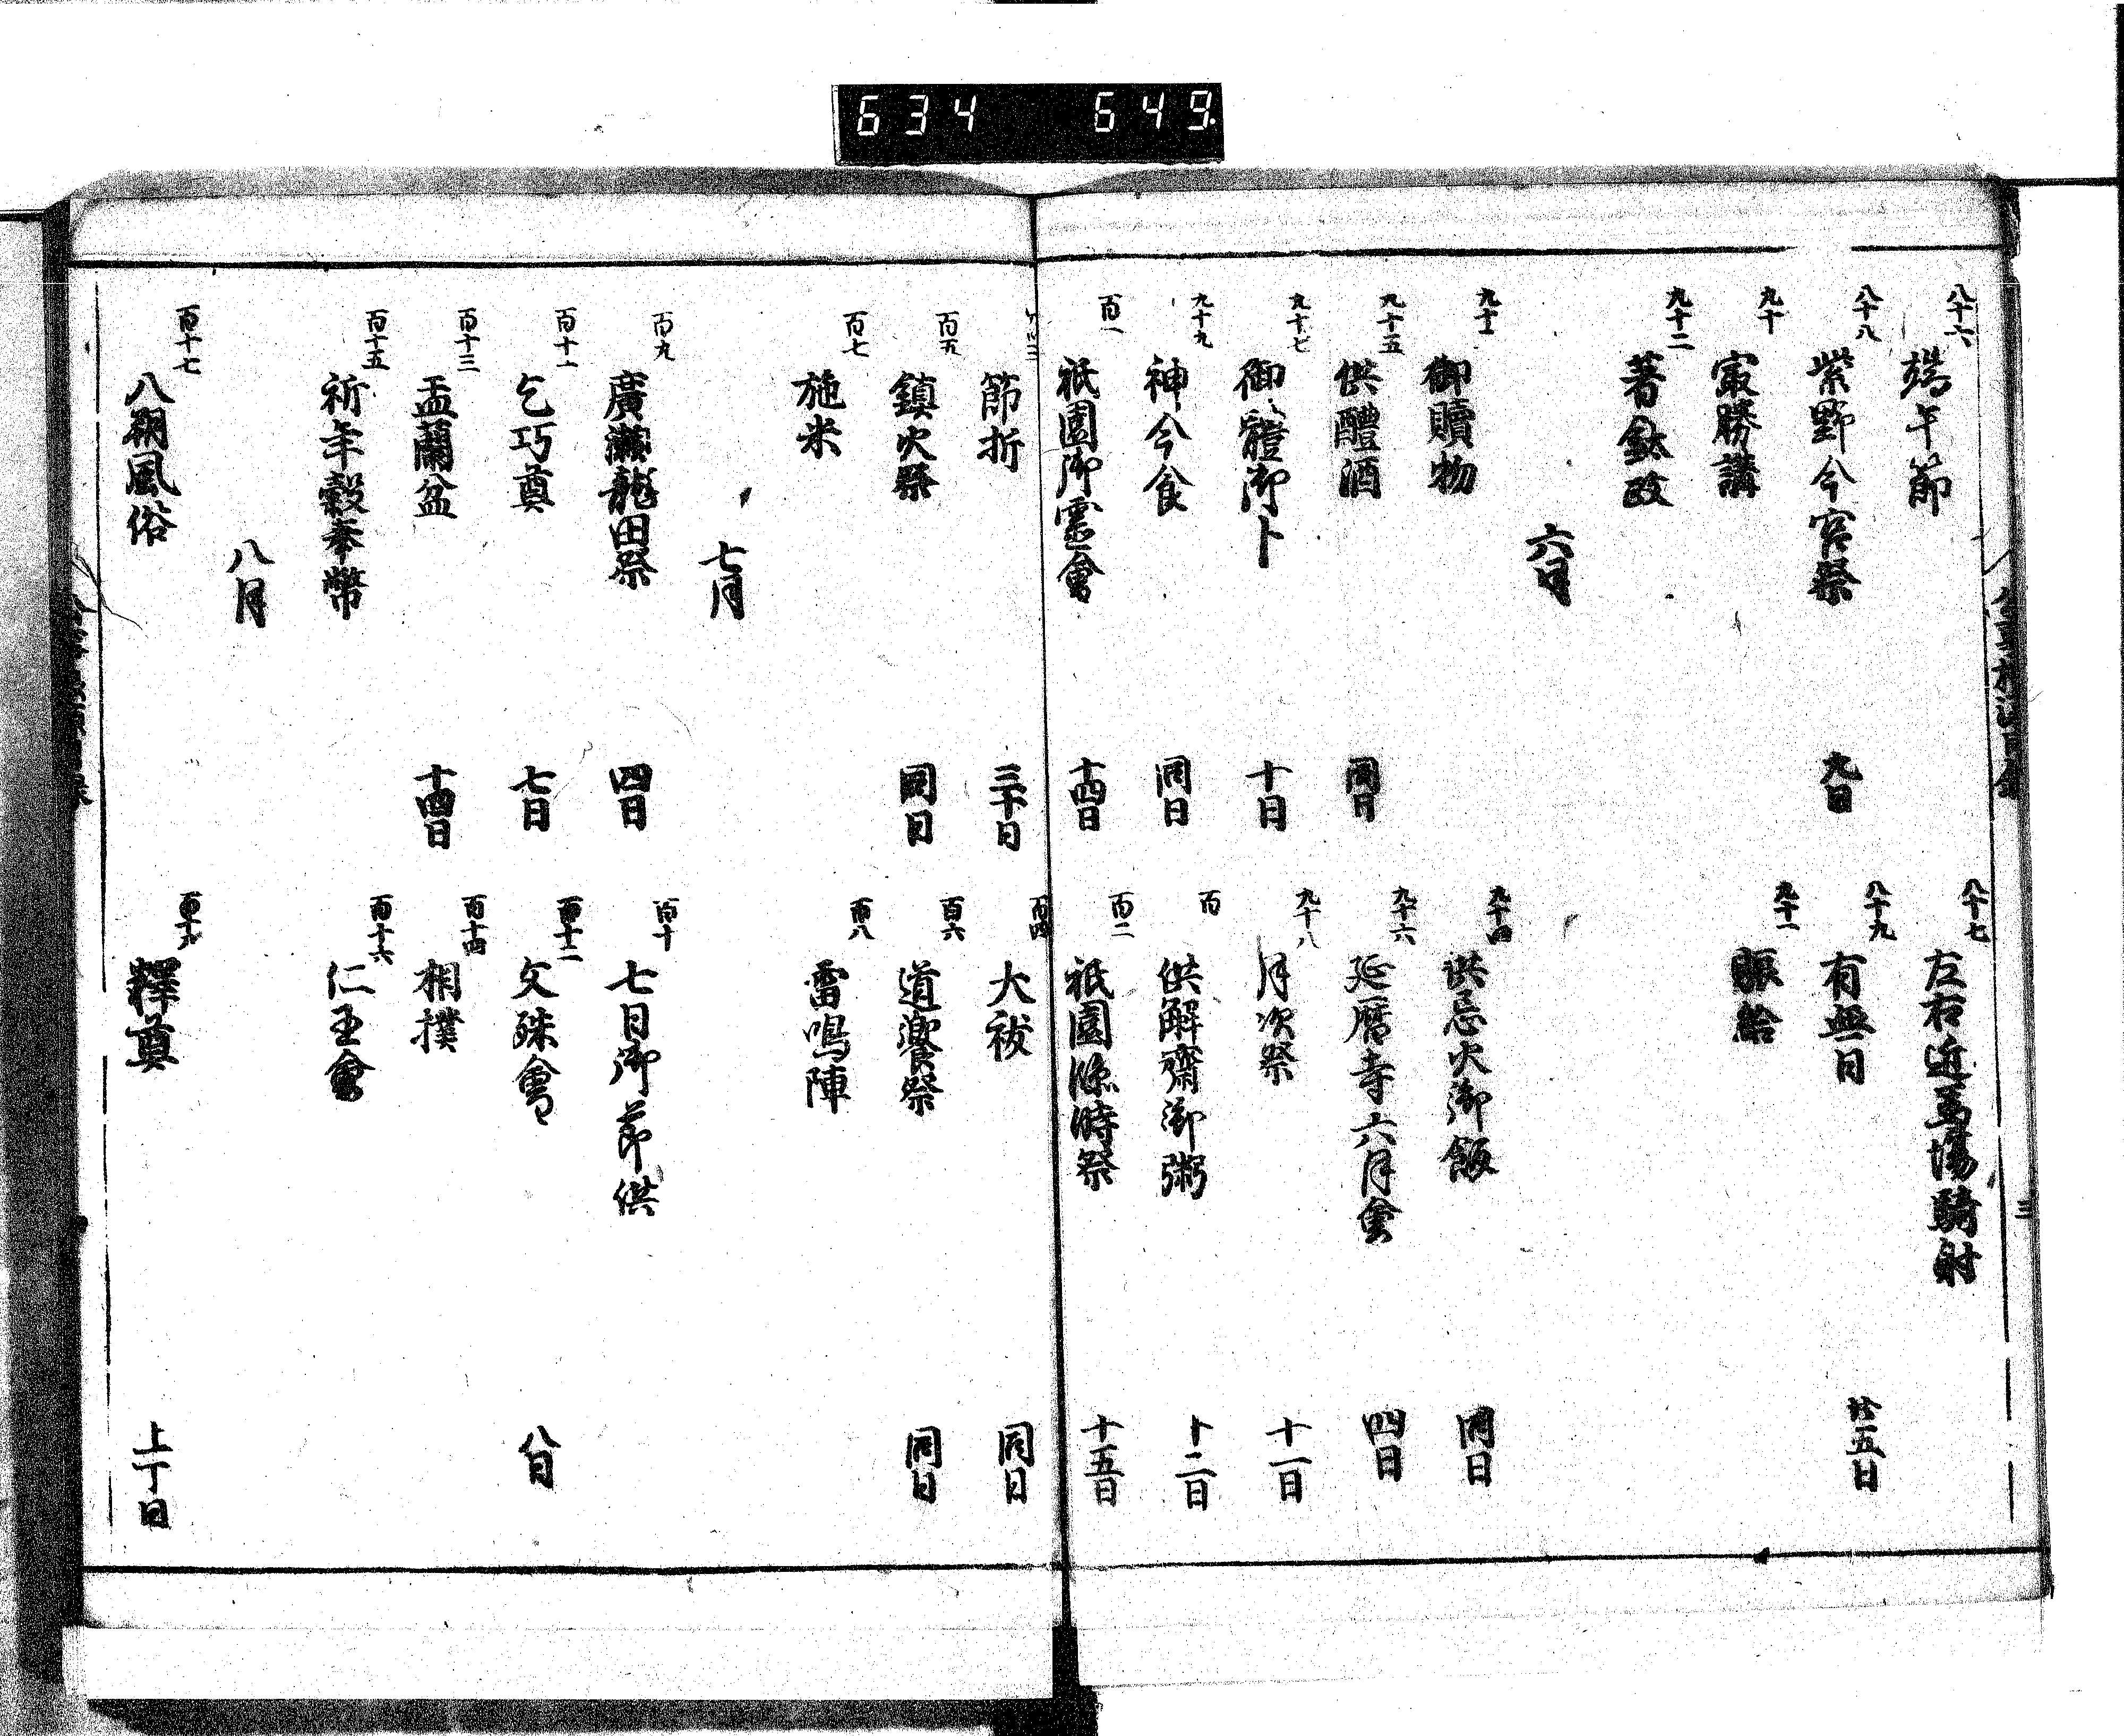 634 649
八十六 端午節
八十七 左右近馬塲騎射
八十八 紫野今宮祭 九日
八十九 有無日 拾五日
九十 㝡勝講
九十一 賑給
九十二 著鈦政
六月
御贖物
九十四 供忌火御飯 同日
九十五 供醴酒 同日
九十六 延暦寺六月會 四日
九十七 御體御卜 十日
九十八 月次祭 十一日
九十九 神今食 同日
百 供解齋御粥 十二日
百一 祇園御霊會 十四日
百二 祇園臨時祭 十五日
節折 三十日
百四 大祓 同日
百五 鎮火祭 同日
百六 道饗祭 同日
百七 施米
百八 雷鳴陣
七月
百九 廣瀬龍田祭 四日
百十 七日御節供
百十一 乞巧奠 七日
百十二 文殊會 八日
百十三 盂蘭盆 十四日
百十四 相撲
百十五 祈年穀奉幣
百十六 仁王會
八月
百十七 八朔風俗
釋奠 上丁日
三